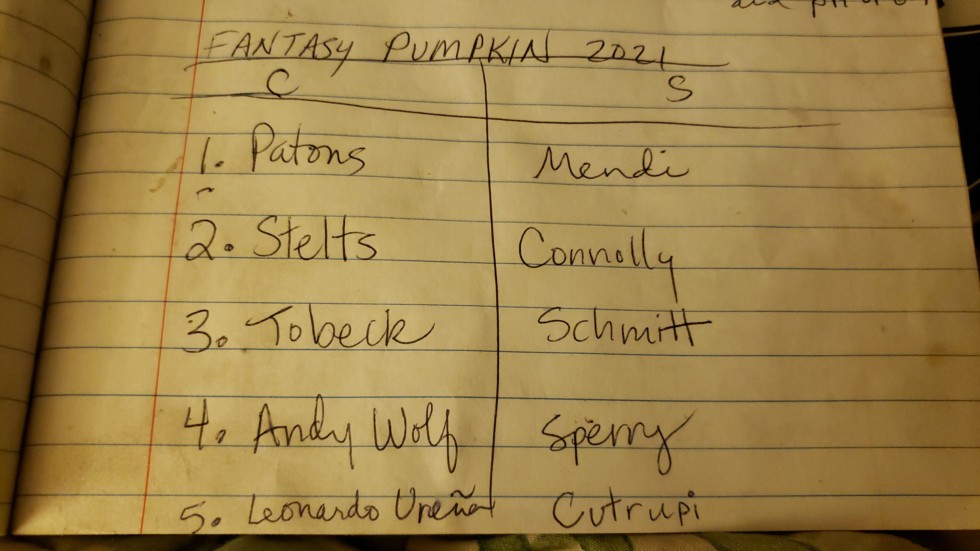 FANTASY PUMPKIN 2021
C S
1. Patons Mendi
2. Stelts Connolly
3. Tobeck Schmitt
4. Andy Wolf Sperry
5. Leonardo Ureña Cutrupi